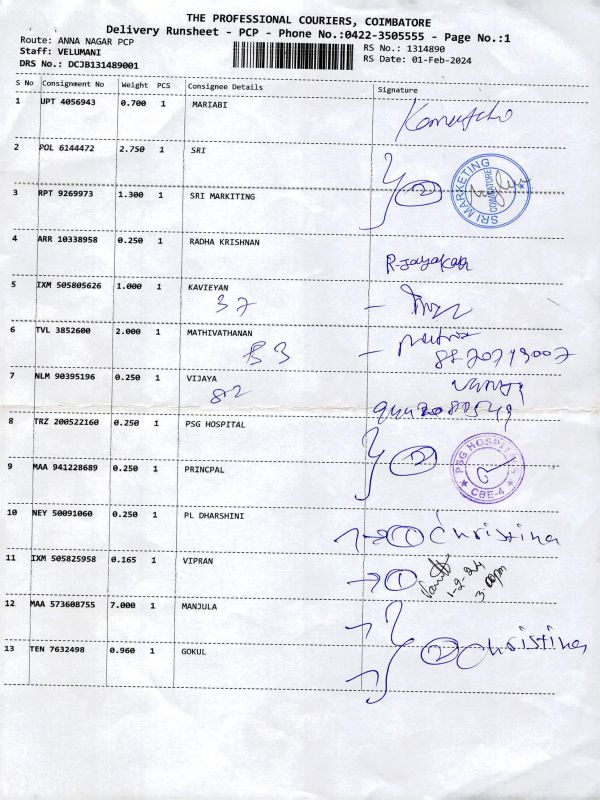 THE PROFESSIONAL COURIERS, COIMBATORE
Delivery Runsheet - PCP - Phone No.:0422-3505555 - Page No.:1
Route: ANNA NAGAR PCP
Staff: VELUMANI
DRS No.: DCJB131489001
RS No.: 1314890
RS Date: 01-Feb-2024
S No Consignment No Weight PCS Consignee Details Signature
1 UPT 4056943 0.700 1 MARIABI
2 POL 6144472 2.750 1 SRI
3 RPT 9269973 1.300 1 SRI MARKITING
2
SRI MARKETING
COIMBATORE
4 ARR 10338958 0.250 1 RADHA KRISHNAN
R-Jayakar
5 IXM 505805626 1.000 1 KAVIEYAN
37
6 TVL 3852600 2.000 1 MATHIVATHANAN
53
8870719007
7 NLM 90395196 0.250 1 VIJAYA
82
8 TRZ 200522160 0.250 1 PSG HOSPITAL
9 MAA 941228689 0.250 1 PRINCPAL
2
PSG HOSPITALS
CBE-4
10 NEY 50091060 0.250 1 PL DHARSHINI
1 Christina
11 IXM 505825958 0.165 1 VIPRAN
1
1-2-24
3.00pm
12 MAA 573608755 7.000 1 MANJULA
13 TEN 7632498 0.960 1 GOKUL
2 Christina